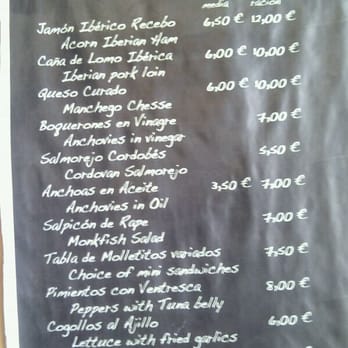 media ración
Jamón Ibérico Recebo 6,50 € 12,00 €
Acorn Iberian Ham
Caña de Lomo Ibérica 6,00 € 10,00 €
Iberian pork loin
Queso Curado 6,00 € 10,00 €
Manchego Chesse
Boquerones en Vinagre 7,00 €
Anchovies in vinegar
Salmorejo Cordobés 5,50 €
Cordovan Salmorejo
Anchoas en Aceite 3,50 € 7,00 €
Anchovies in Oil
Salpicón de Rape 7,00 €
Monkfish Salad
Tabla de Molletitos variados 7,50 €
Choice of mini sandwiches
Pimientos con Ventresca 8,00 €
Peppers with Tuna belly
Cogollos al Ajillo 6,00 €
Lettuce with fried garlics